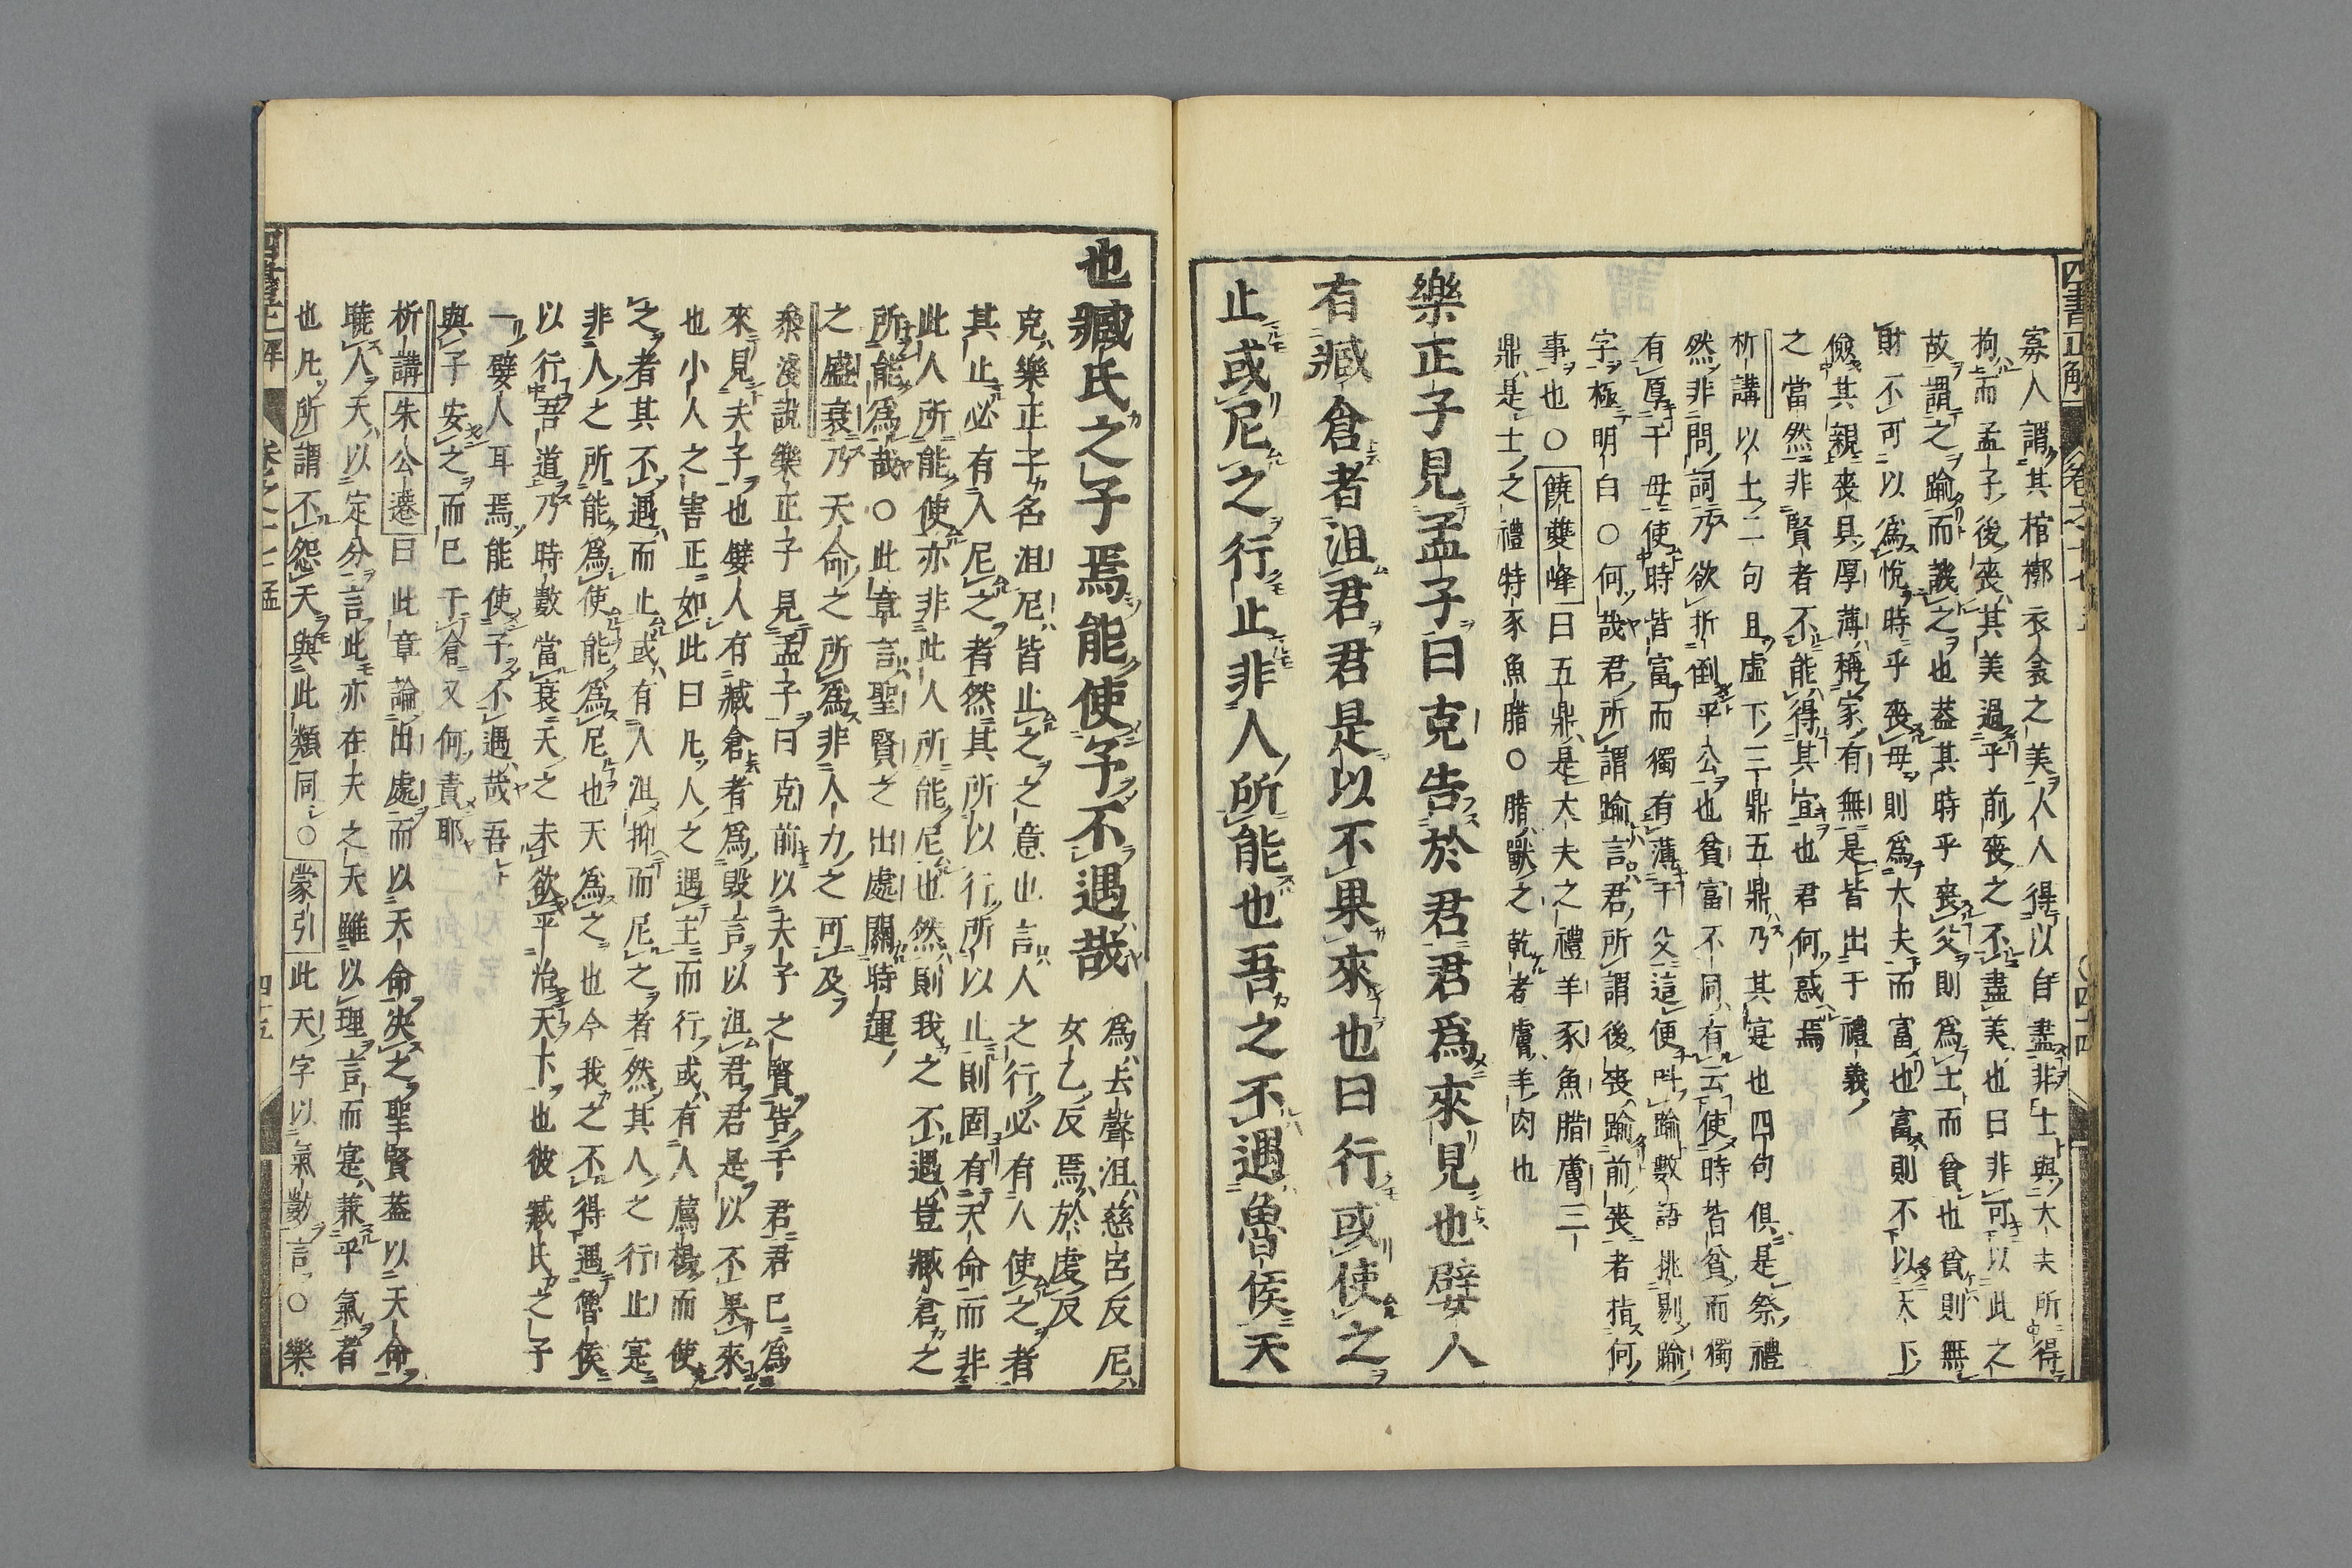 四書正解
卷之十七
四十四
寡人謂其棺槨衣衾之美人人得以自盡非士與大夫所得
拘而孟子後喪其美過乎前喪之不盡美也曰非可以此之
故謂之踰而譏之也蓋其時乎喪父則為士而貧也貧則無
財不可以為悅時乎喪母則為大夫而富也富則不以天下
儉其親喪具厚薄稱家有無是皆出于禮義
之當然非賢者不能得其宜也君何惑焉
析講以士二句且虛下三鼎五鼎乃其寔也四句俱是祭禮
然非問詞乃欲折倒平公也貧富不同有云使時皆貧而獨
有厚于母使時皆富而獨有薄于父這便叫踰數語挑剔踰
字極明白○何哉君所謂踰言君所謂後喪踰前喪者指何
事也○饒雙峰曰五鼎是大夫之禮羊豕魚腊膚三
鼎是士之禮特豕魚腊○腊獸之乾者膚羊肉也
樂正子見孟子曰克告於君君為來見也嬖人
有臧倉者沮君君是以不果來也曰行或使之
止或尼之行止非人所能也吾之不遇魯侯天
也臧氏之子焉能使予不遇哉
為去聲沮慈呂反尼
女乙反焉於虔反
克樂正子名沮尼皆止之之意也言人之行必有人使之者
其止必有人尼之者然其所以行所以止則固有天命而非
此人所能使亦非此人所能尼也然則我之不遇豈臧倉之
所能為哉○此章言聖賢之出處關時運
之盛衰乃天命之所為非人力之可及
叅淺說樂正子見孟子曰克前以夫子之賢告于君君已為
來見夫子也嬖人有臧倉者為毀言以沮君君是以不果來
也小人之害正如此曰凡人之遇主而行或有人薦揚而使
之者其不遇而止或有人沮抑而尼之者然其人之行止寔
非人之所能為使能為尼也天為之也今我之不得遇魯侯
以行吾道乃時數當衰天之未欲平治天下也彼臧氏之子
一嬖人耳焉能使予不遇哉吾
與子安之而已于倉又何責耶
析講朱公遷曰此章論出處而以天命決之聖賢蓋以天命
曉人天以定分言此亦在夫之天雖以理言而寔兼乎氣者
也凡所謂不怨天與此類同○蒙引此天字以氣數言○樂
四書正解
卷之十七孟
四十五